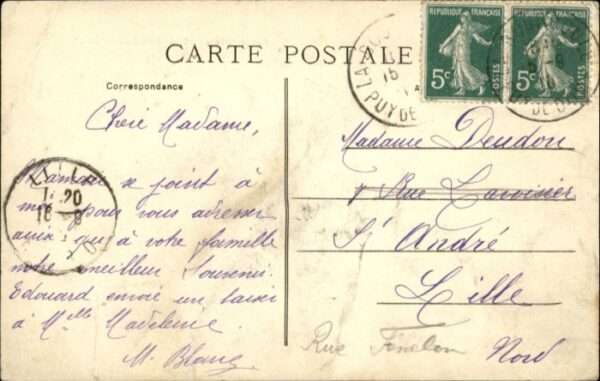 CARTE POSTALE
Correspondance
Chère Madame,
Maman se joint à
moi pour vous adresser
ainsi qu'à votre famille
notre meilleur souvenir.
Edouard envoie un baiser
à Mlle Madeleine.
M. Blanc
RÉPUBLIQUE FRANÇAISE
5c
POSTES
RÉPUBLIQUE FRANÇAISE
5c
POSTES
PUY DE
LILLE
1 20
16 - 8
Madame Deudon
Rue Lavoisier
St André
Lille
Rue Fénelon
Nord